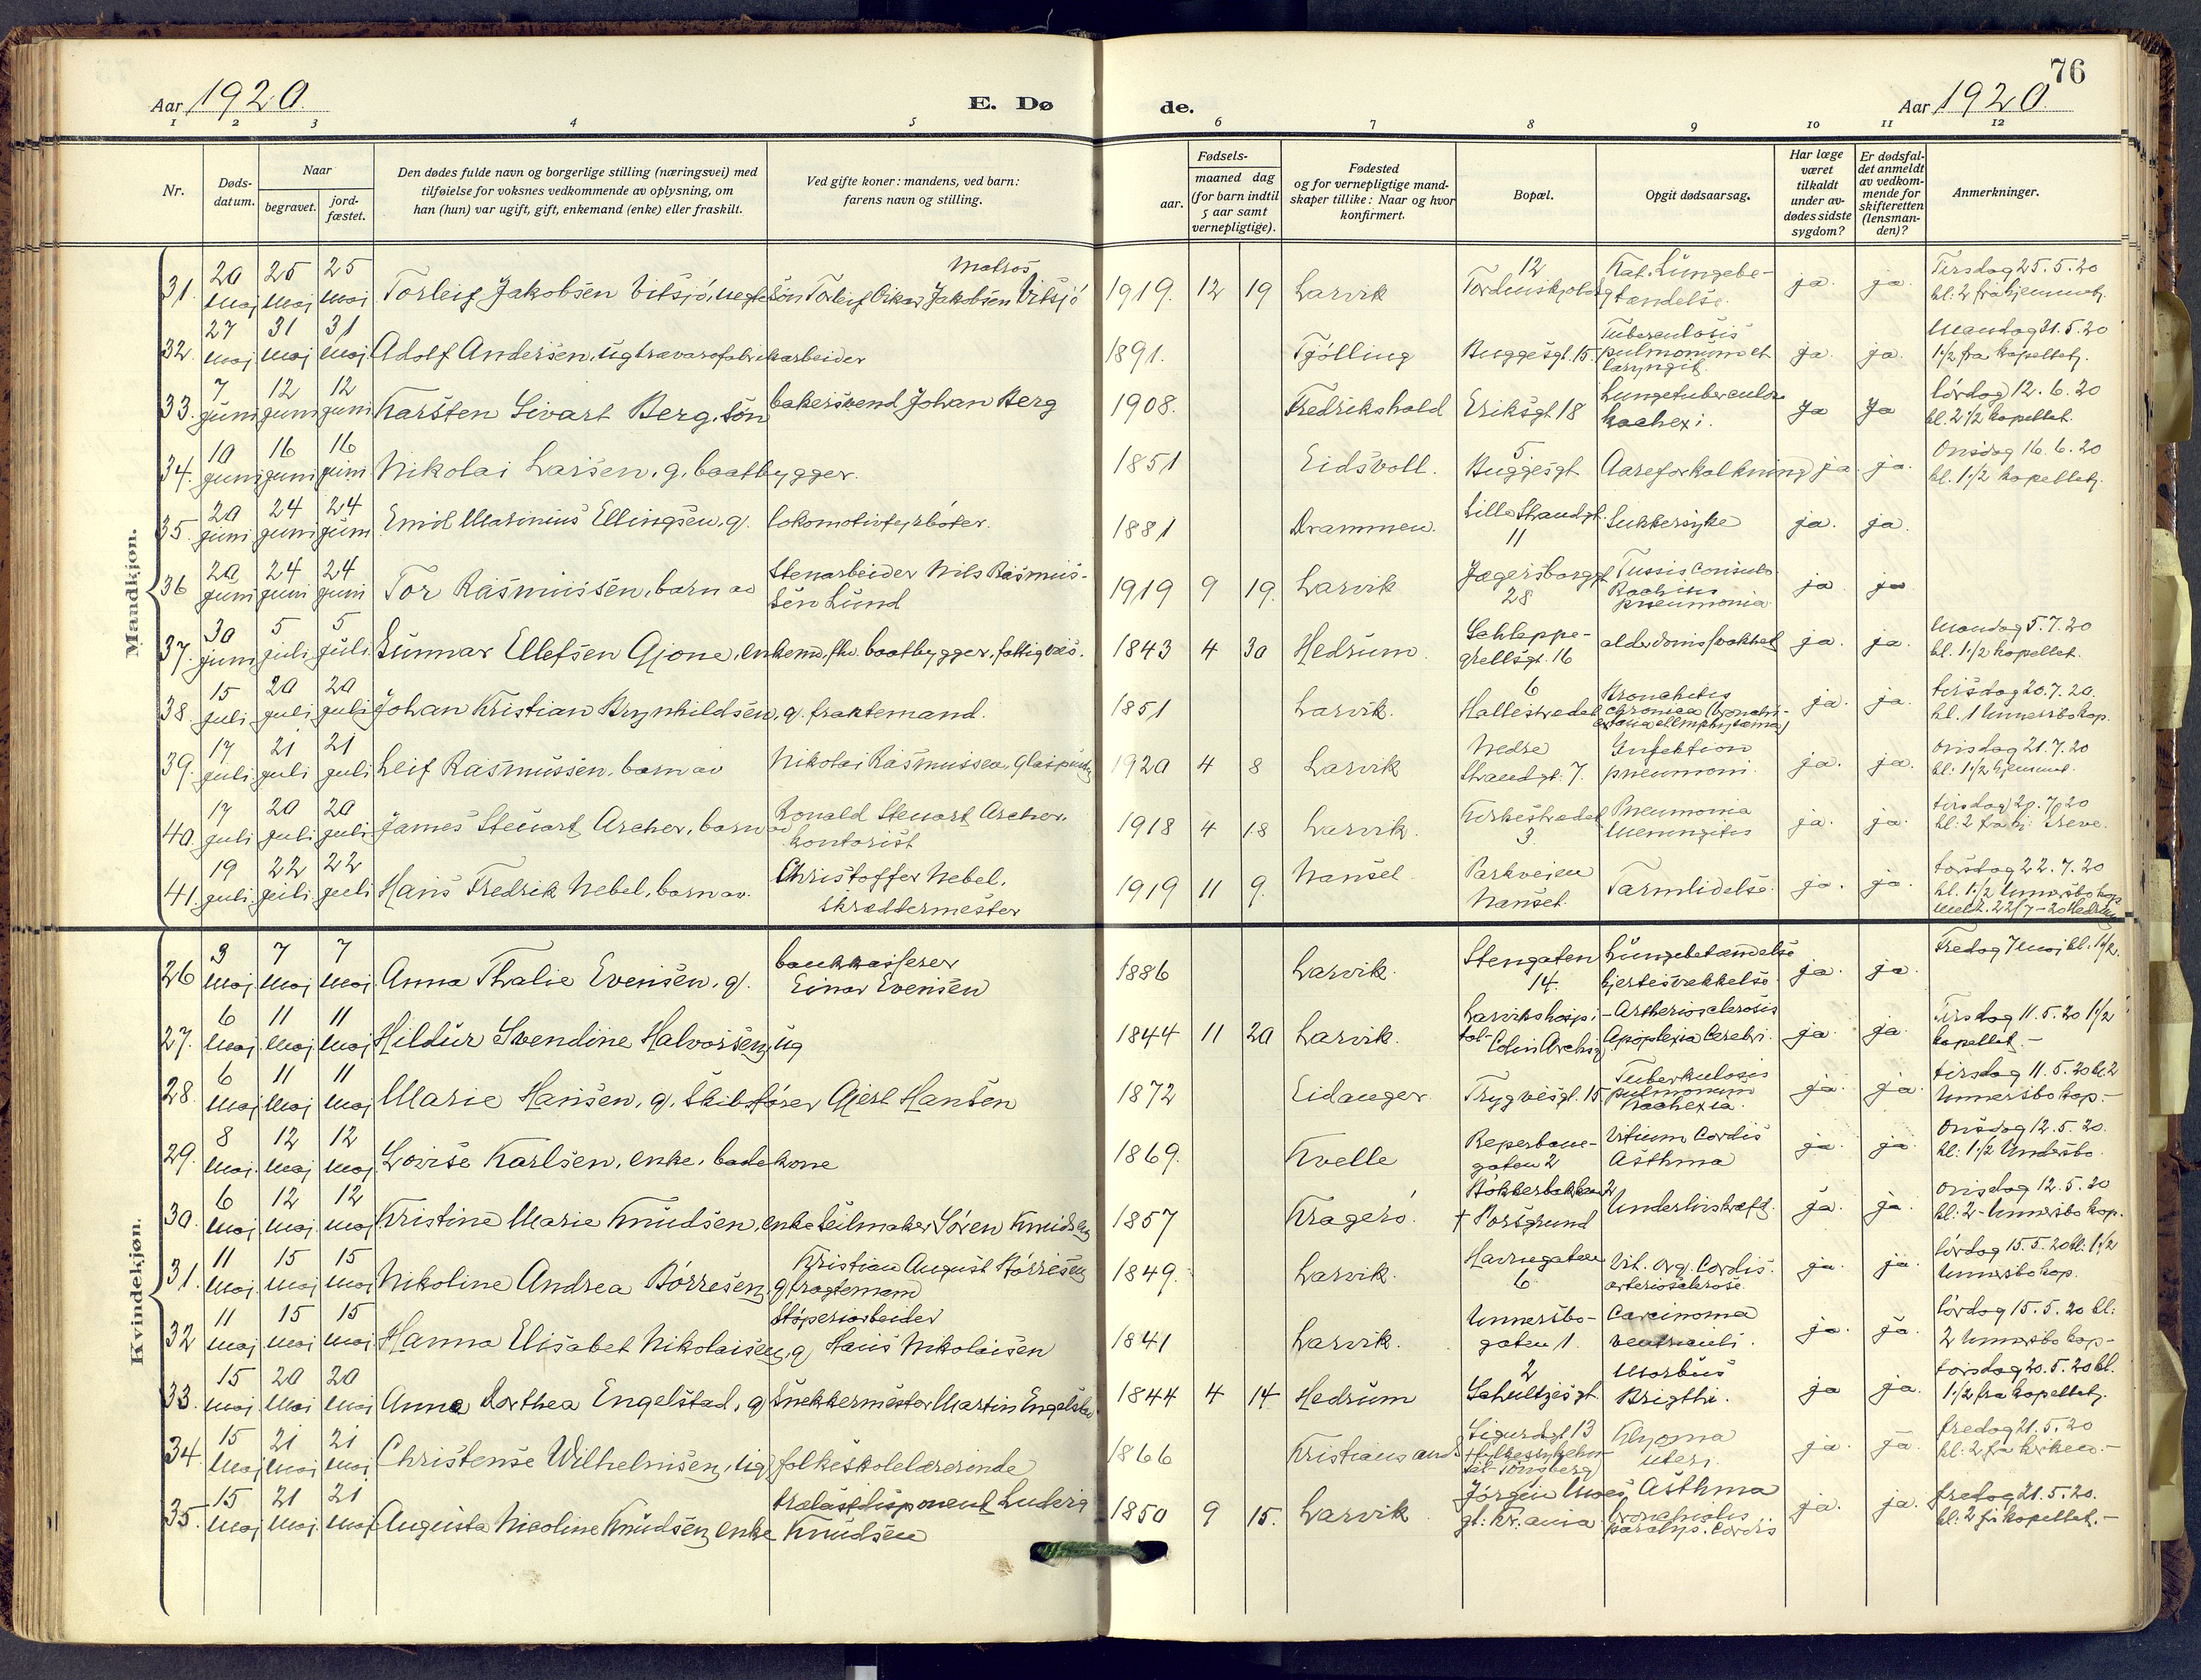 76
Aar 1920. E. Dø de. Aar 1920.
1 2 3 4 5 6 7 8 9 10 11 12
Nr. Døds-datum. Naar begravet. jord-fæstet. Den dødes fulde navn og borgerlige stilling (næringsvei) med tilføielse for voksnes vedkommende av oplysning, om han (hun) var ugift, gift, enkemand (enke) eller fraskilt. Ved gifte koner: mandens, ved barn: farens navn og stilling. Fødsels- aar. maaned dag (for barn indtil 5 aar samt vernepligtige). Fødested og for vernepligtige mand-skaper tillike: Naar og hvor konfirmert. Bopæl. Opgit dødsaarsag. Har læge været tilkaldt under av-dødes sidste sygdom? Er dødsfal-det anmeldt av vedkom-mende for skifteretten (lensman-den)? Anmerkninger.
Mandkjøn.
31. 20 maj 25 maj 25 maj Torleif Jakobsen Vitsjø, uegte søn Matros Torleif Oskar Jakobsen Vitsjø 1919. 12 19 Larvik 12 Kat. Lungebe-tændelse. ja. ja. Tirsdag 25.5.20 kl: 2 fra hjemmet.
32. 27 maj 31 maj 31 maj Adolf Andersen, ug trævarefabrikarbeider 1891. Tjølling Buggesgt. 15. Tuberculosis pulmonum et laryngit. ja. ja. Mandag 31.5.20 1 1/2 fra kapellet.
33. 7 juni 12 juni 12 juni Karsten Sivart Berg, søn bakersvend Johan Berg 1908. Fredrikshald Eriksgt. 18 Lungetuberculose kachexi. ja ja lørdag 12.6.20 kl. 2 1/2 kapellet.
34. 10 juni 16 juni 16 juni Nikolai Larsen, g. baatbygger. 1851 Eidsvoll. 5. Buggesgt. Aareforkalkning ja. ja. Onsdag 16.6.20 kl. 1 1/2 kapellet.
35. 20 juni 24 juni 24 juni Emil Marinius Ellingsen, g. lokomotivfyrbøter. 1881 Drammen. Lille Strandgt. 11 Sukkersyke ja. ja.
36 20 juni 24 juni 24 juni Tor Rasmussen, barn av Stenarbeider Nils Rasmus-sen Lund 1919 9 19. Larvik Jægersborggt. 28 Tussis Rachitis pneumonia ja ja
37. 30 juni 5 juli 5 juli Gunnar Ellefsen Gjone, enkem, fhv. baatbygger, fattigvæs. 1843 4 30 Hedrum. Schleppe-grellsgt. 16 alderdomssvakhet ja. ja. Mandag 5.7.20 kl. 1 1/2 kapellet.
38. 15 juli 20 juli 20 juli Johan Kristian Brynhildsen, g. fraktemand. 1851 Larvik. 6 Hallestredet Bronchitis chronica ja. ja. tirsdag 20.7.20. kl. 1 Unnersbo kap.
39. 17 juli 21 juli 21 juli Leif Rasmussen, barn av Nikolai Rasmussen, 1920 4 8 Larvik Nedre Strandgt. 7. Infektion pneumoni. ja. ja. onsdag 21.7.20 kl: 1 1/2 hjemmet.
40. 17 juli 20 juli 20 juli James Steuart Archer, barn av Ronald Steuart Archer, kontorist 1918 4 18 Larvik. Kirkestredet 3. Pneumonia Meningitis ja. ja. tirsdag 20.7.20 kl: 2 fra hj.
41. 19 juli. 22 juli 22 juli Hans Fredrik Nebel, barn av. Christoffer Nebel, skræddermester 1919 11 9. Nanset Parkveien Nanset. Tarmlidelse. ja. ja. torsdag 22.7.20 kl. 1 1/2 Unnersbo kap. meldt. 22/7-20 Hedrum
Kvindekjøn.
26 3 maj 7 maj 7 maj Anna Thalie Evensen, g. bankkasserer Einar Evensen 1886 Larvik. Stengaten 14. Lungebetændelse hjertesvækkelse. ja. ja. Fredag 7 maj kl. 1 1/2.
27. 6 maj. 11 maj. 11 maj Hildur Svendine Halvorsen, ug 1844 11 20 Larvik. Larvikshospi-tal- Colin Archsg. Artheriosclerosis Apoplexia Cerebri. ja. ja. Tirsdag 11.5.20 1 1/2 kapellet.-
28. 6 maj 11 maj 11 maj Marie Hansen, g. Skibsfører Gjert Hansen 1872 Eidanger. Trygvesgt. 15 Tuberkulosis pulmonum Kachexia. ja. ja. tirsdag 11.5.20 kl. 2 Unnersbo kap.-
29. 8 maj. 12 maj 12 maj Lovise Karlsen, enke, badekone 1869. Kvelle Reperbane-gaten 2 Vitium Cordis Asthma ja. ja. Onsdag 12.5.20. kl: 1 1/2 Undersbo.
30. 6 maj 12 maj. 12 maj Kristine Marie Knudsen, enke Seilmaker Søren Knudsen 1857 Kragerø. Bøkkerbakken 2 † Porsgrund Underlivskræft. ja. ja. onsdag 12.5.20 kl: 2 - Unnersbo kap.
31. 11 maj 15 maj 15 maj Nikoline Andrea Børresen, g. Kristian August Børresen fragtemann 1849. Larvik. Havnegaten 6. Vit. org. Cordis. arteriosclerose. ja. ja. lørdag 15.5.20 kl: 1 1/2 Unnersbo kap.
32 11 maj 15 maj 15 maj Hanna Elisabet Nikolaisen, g Støperiarbeider Hans Nikolaisen 1841 Larvik. Unnersbo-gaten 1. Carcinoma ventriculi. ja. ja. lørdag 15.5.20 kl: 2 Unnersbo kap-
33. 15 maj 20 maj 20 maj Anna Dorthea Engelstad, g Snekkermester Martin Engelstad. 1844 4 14 Hedrum 2 Schultzesgt. Morbus Brigthi. ja ja. torsdag 20.5.20 kl. 1 1/2 fra kapellet.
34. 15 maj 21 maj 21 maj Christense Wilhelmsen, ug folkeskolelærerinde 1866 Kristiansand Sigurdsgt 13 Tønsberg Myoma uteri. ja. ja. fredag 21.5.20 kl: 2 fra kirken.-
35. 15 maj 21 maj 21 maj Augusta Nicoline Knudsen, enke trælastdisponent Ludvig Knudsen 1850 9 15. Larvik Jørgen Moes gt: Kr.ania Asthma bronchialis paralys. Cordis ja. ja. fredag 21.5.20. kl: 2 fr kapellet.-